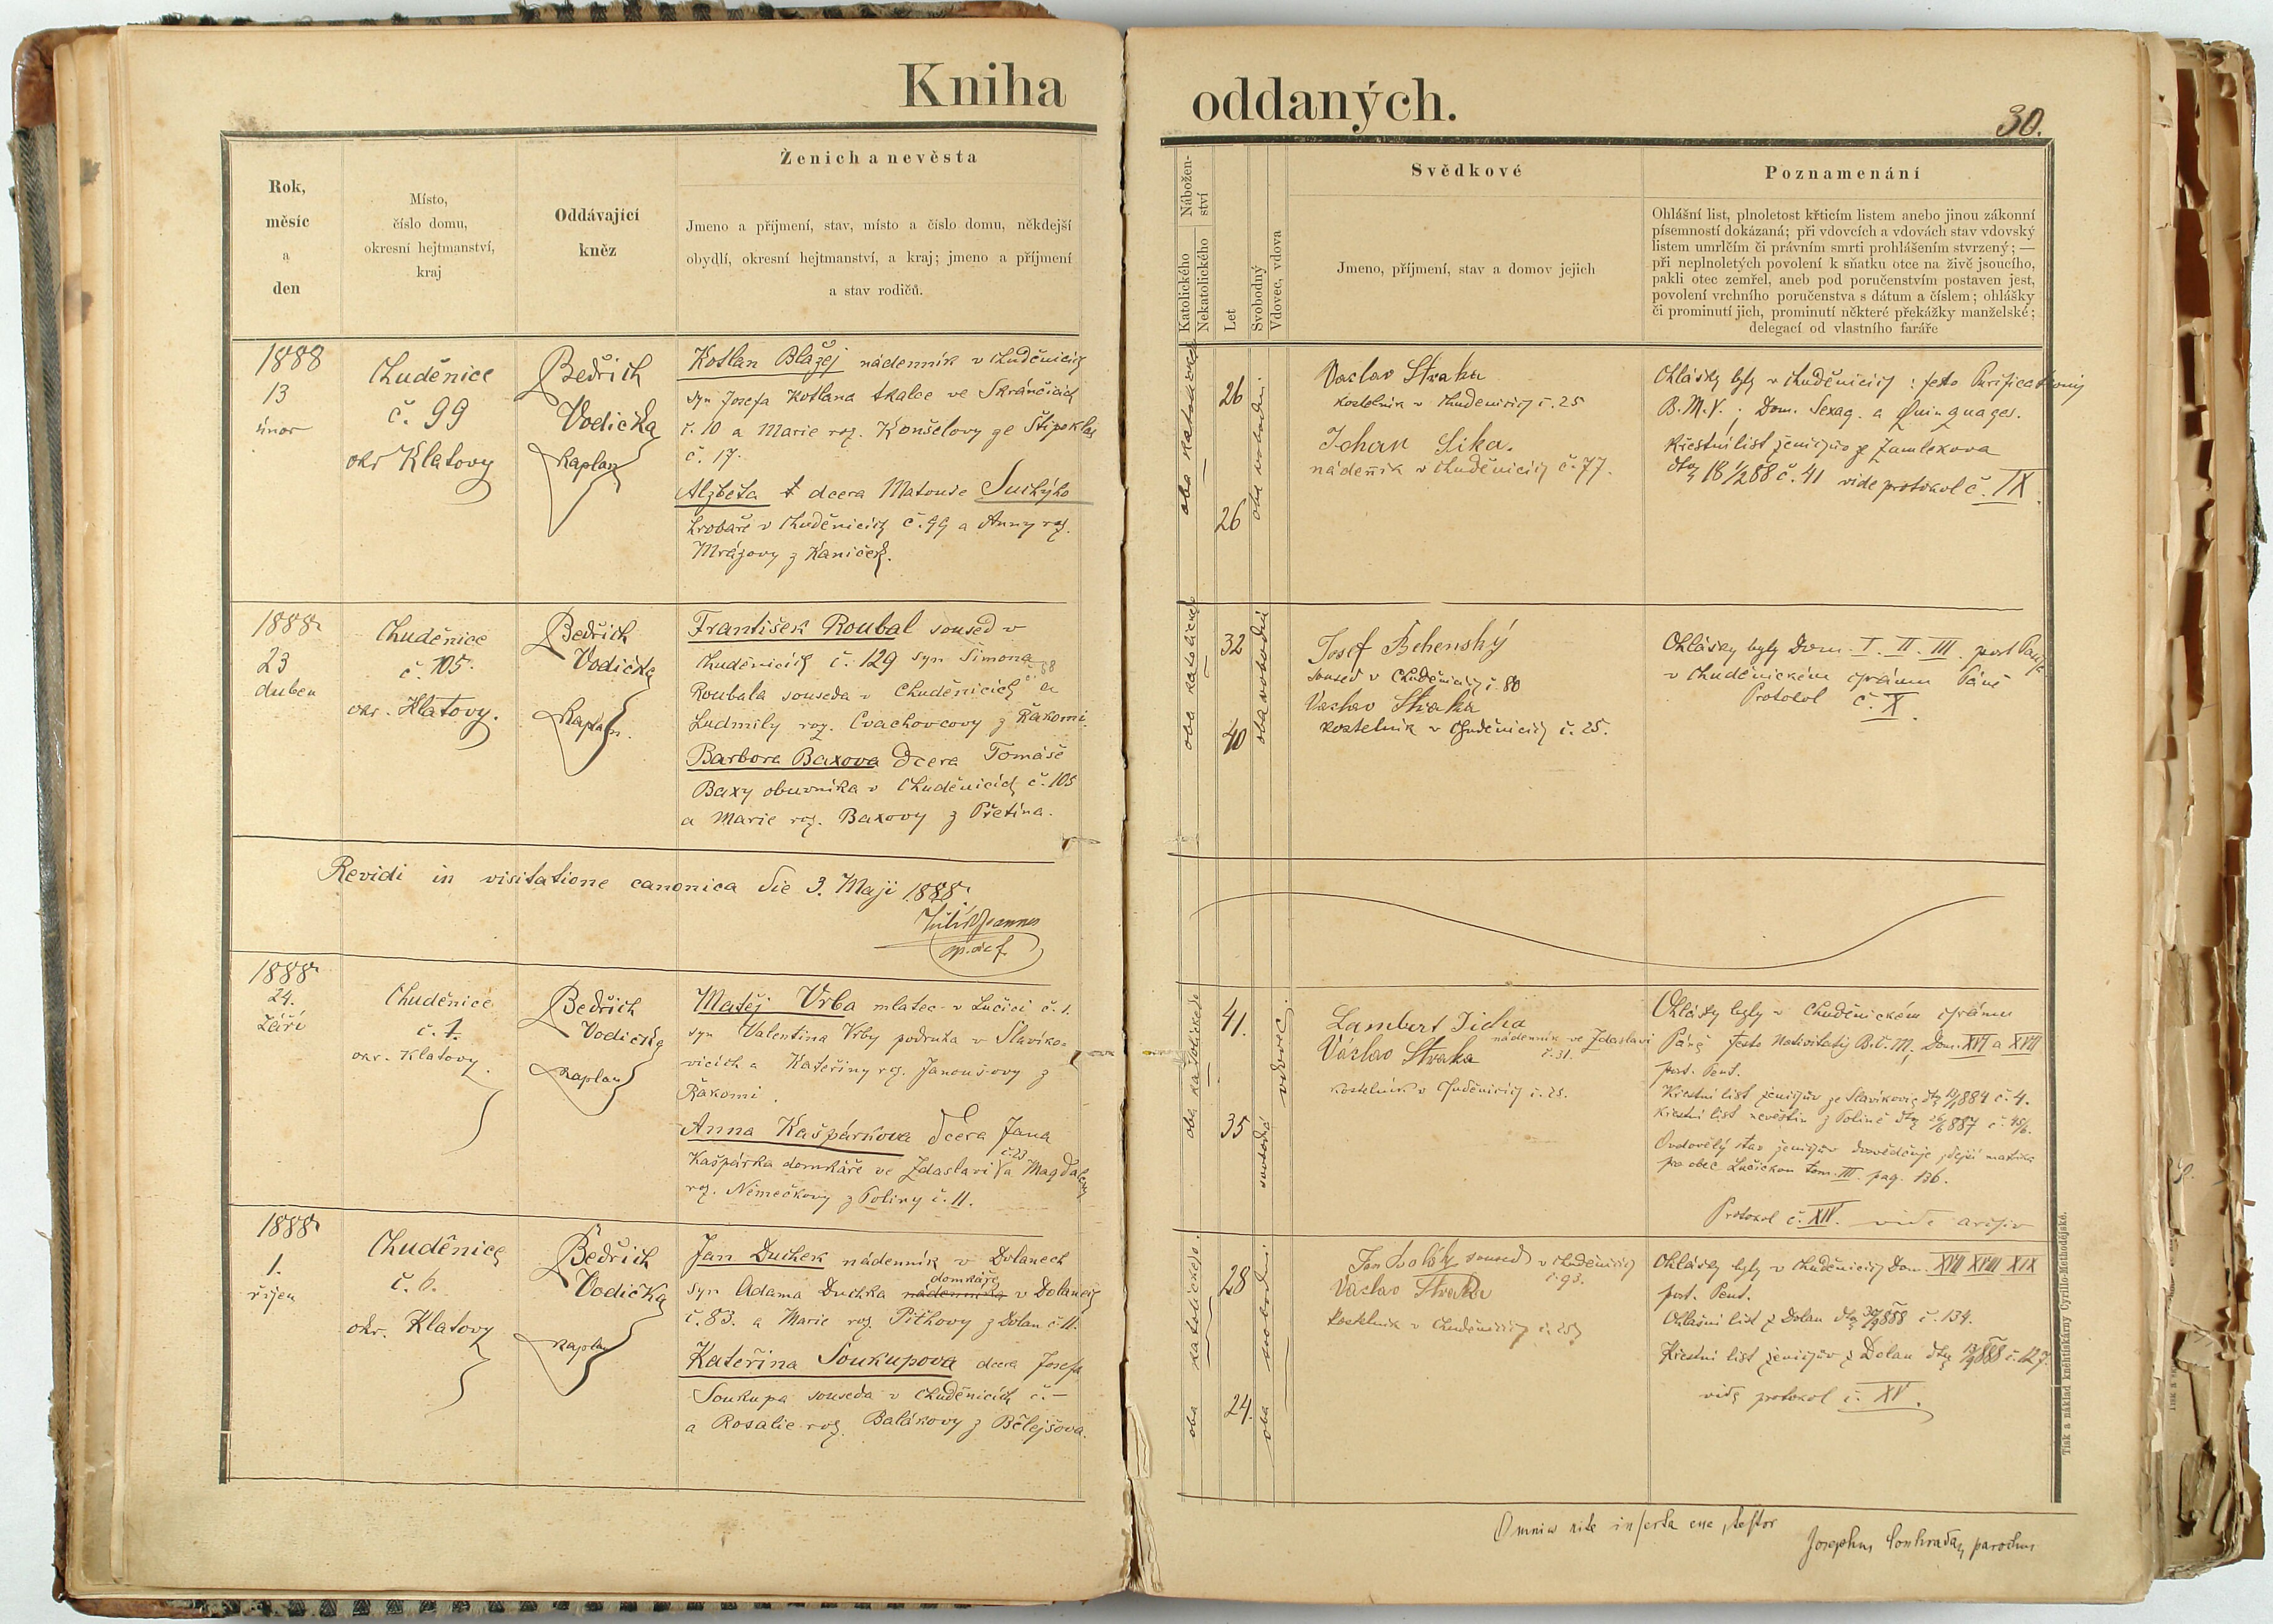 Kniha
Rok,
měsíc
a
den
Místo,
číslo domu,
okresní hejtmanství,
kraj
Oddávající
kněz
Ženich a nevěsta
Jmeno a příjmení, stav, místo a číslo domu, někdejší
obydlí, okresní hejtmanství, a kraj; jmeno a příjmení
a stav rodičů.
1888
13
únor
Chuděnice
č. 99
okr Klatovy
Bedřich
Vodička
Kaplan
Kotlan Blažej nádenník v Chuděnicích
syn Josefa Kotlana tkalce ve Skránčicích
č. 10 a Marie roz. Konšelovy ze Štipoklas
č. 17.
Alzběta dcera Matouše Suchýho
hrobaře v Chuděnicích č. 99 a Anny roz.
Mrázovy z Kaniček.
1888
23
duben
Chuděnice
č. 105.
okr. Klatovy.
Bedřich
Vodička
Kaplan.
František Roubal soused v
Chuděnicích č. 129 syn Simona
Roubala souseda v Chuděnicích č. 68 a
Ludmily roz. Cvachovcovy z Řakomi.
Barbora Baxova dcera Tomáše
Baxy obuvníka v Chuděnicích č. 105
a Marie roz. Baxovy z Přetína.
Revidi in visitatione canonica die 3. Maji 1888.
1888
24.
Září
Chuděnice
č. 1.
okr. Klatovy.
Bedřich
Vodička
Kaplan
Matěj Vrba mlatec v Lučici č. 1.
syn Valentina Vrby podruha v Slaviko-
vicích a Kateřiny roz. Janoušovy z
Řakomi.
Anna Kašpárkova dcera Jana
Kašpárka domkáře ve Zdaslavi č. 23 a Magdaleny
roz. Němečkovy z Poliny č. 11.
1888
1.
říjen
Chuděnice
č. 6.
okr. Klatovy
Bedřich
Vodička
Kaplan
Jan Duchek nádenník v Dolanech
syn Adama Duchka nádenníka domkáře v Dolanech
č. 83. a Marie roz. Pithovy z Dolan č. 11.
Kateřina Soukupova dcera Josefa
Soukupa souseda v Chuděnicích č. —
a Rosalie roz. Balákovy z Bělejšova.
oddaných.
30.
Nábožen-
ství
Katolického
Nekatolického
Let
Svobodný
Vdovec, vdova
Svědkové
Jmeno, příjmení, stav a domov jejich
Poznamenání
Ohlášní list, plnoletost křticím listem anebo jinou zákonní
písemností dokázaná; při vdovcích a vdovách stav vdovský
listem umrlčím či právním smrti prohlášením stvrzený; —
při neplnoletých povolení k sňatku otce na živě jsoucího,
pakli otec zemřel, aneb pod poručenstvím postaven jest,
povolení vrchního poručenstva s dátum a číslem; ohlášky
či prominutí jich, prominutí některé překážky manželské;
delegací od vlastního faráře
oba katolického
26
26
oba svobodni
Vaclav Straka
kostelník v Chuděnicích č. 25
Johan Sika.
nádenník v Chuděnicích č. 77.
Ohlášky byly v Chuděnicích: festo Purificationis
B. M. V.; Dom. Sexag. a Quinquages.
Křestní list ženichův z Zamlekova
č. 41 vide protokol č. IX.
oba katolického
32
40
oba svobodni
Josef Behenský
soused v Chuděnicích č. 80
Vaclav Straka
kostelník v Chuděnicích č. 25.
Ohlášky byly Dom. I. II. III. post Pasc.
v Chuděnickém chrámu Páně
Protokol č. X.
oba katolického
41.
35
vdovec.
svobodná
Lambert Ticha
nádenník ve Zdaslavi
č. 31.
Václav Straka
kostelník v Chuděnicích č. 25.
Ohlášky byly v Chuděnickém chrámu
Páně festo Nativitatis B. V. M., Dom. XVI a XVII
post. Pent.
Křestní list ženichův ze Slavikovic 884 č. 4.
Křestní list nevěstin z Polině 887
Ovdovělý stav ženichův dosvědčuje zdejší matrika
pro obec Lučickou tom. III. pag. 136.
Protokol č. XIV. vide archiv
oba katolického.
28
24.
oba svobodni
Jan soused v Chuděnicích
č. 93.
Václav Straka
Kostelník v Chuděnicích č. 25
Ohlášky byly v Chuděnicích Dom. XVII XVIII XIX
post. Pent.
Ohlašní list z Dolan 888 č. 134.
Křestní list ženichův z Dolan 888 č. 127.
vide protokol č. XV.
Omnia rite inserta esse, testor
Josephus parochus
Tisk a náklad knihtiskárny Cyrillo-Methodějské.